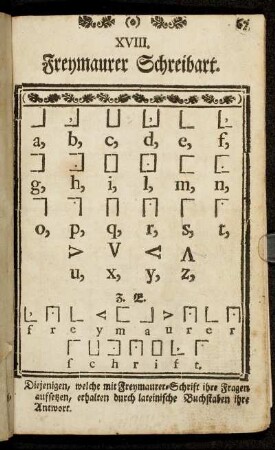 (o)
62.
XVIII.
Freymaurer Schreibart.
a, b, c, d, e, f,
g, h, i, l, m, n,
o, p, q, r, s, t,
> V < Λ
u, x, y, z,
Z. E.
f r e y m a u r e r
s c h r i f t.
Diejenigen, welche mit Freymaurer-Schrift ihre Fragen
aufsetzen, erhalten durch lateinische Buchstaben ihre
Antwort.